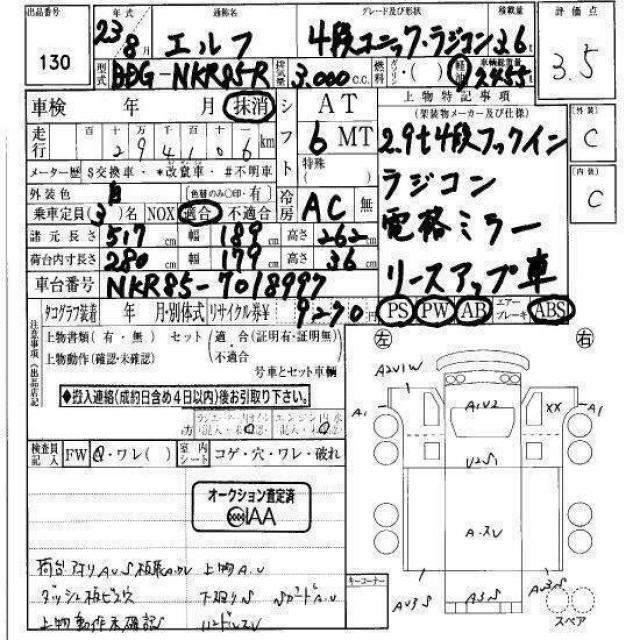 出品番号 年式 通称名 グレード及び形状 積載量 評価点
130 23年8月 エルフ 4段ユニック・ラジコン 3.6t 3.5
型式 BDG-NKR85-R 排気量 3,000 C.C. 燃料 ガソリン・( )・軽油 車輌総重量 2455
車検 年 月 抹消 シフト AT 6 MT 上物特記事項
(架装物メーカー及び仕様)
走行 百十万千百十一 294106 km 2.9t4段フックイン
メーター歴 $交換車・*改竄車・#不明車 特殊( ) ラジコン
外装色 白 (色替のみ○印・有) 冷房 AC 無 電格ミラー
乗車定員(3)名 NOX 適合 不適合
諸元長さ 517cm 幅 189cm 高さ 262cm
荷台内寸長さ 280cm 幅 179cm 高さ 36cm リースアップ車
車台番号 NKR85-7018997
タコグラフ装着 年 月・別体式 リサイクル券¥ 9270円 PS PW AB エアーブレーキ ABS
[外装] C
[内装] C
注意事項(出品店記
上物書類(有・無) セット(適合(証明有・証明無)
上物動作(確認・未確認) ・不適合
号車とセット車輌
◆搬入連絡(成約日含め4日以内)後お引取り下さい。
検査員記入 FW Q・ワレ( ) 室内シート コゲ・穴・ワレ・破れ
オークション査定済
IAA
荷台アオリAUS 上物A.U
ダッシュ板ビス穴 下廻りS
上物動作未確認
左 右
A2U1W
A1 A1U2 XX A1
U2S1
AU3S A3S AU3S
キーコーナー
スペア